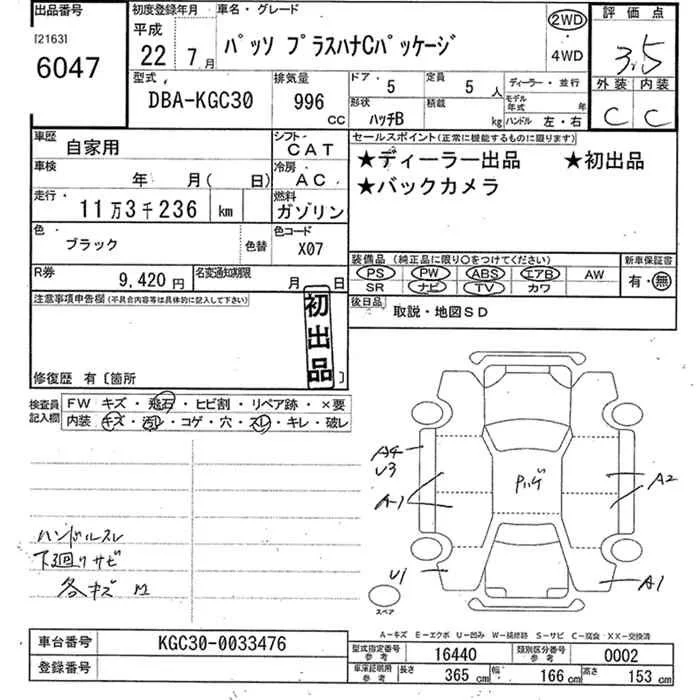 出品番号 初度登録年月 車名・グレード 2WD 評価点
[2163] 平成
6047 22 7月 パッソ プラスハナCパッケージ 4WD 3.5
型式 排気量 ドア・ 5 定員 5 人 ディーラー・並行 外装 内装
DBA-KGC30 996 CC 形状 ハッチB 積載 kg モデル年式 年 C C
ハンドル 左・右
車歴 自家用 シフト CAT セールスポイント(正常に機能するものに限ります)
車検 年 月( 日) 冷房 AC ★ディーラー出品 ★初出品
走行・ 11万3千236 km 燃料 ガソリン ★バックカメラ
色・ ブラック 色替 色コード X07
装備品 (純正品に限り○をつけてください) 新車保証書
R券 9,420円 名変通知期限 月 日 PS PW ABS エアB AW 有・無
SR ナビ TV カワ
注意事項申告欄(不具合内容等は具体的に記入して下さい) 初出品 後日品 取説・地図SD
修復歴 有〔箇所 〕
検査員記入欄 FW キズ・飛石・ヒビ割・リペア跡・×要
内装・キズ・汚レ・コゲ・穴・スレ・キレ・破レ
A4
U3
A-1
A2
ハンドルスレ
下廻りサビ
各キズ
U1
A1
スペア
A-キズ E-エクボ U-凹み W-補修跡 S-サビ C-腐食 XX-交換済
車台番号 KGC30-0033476 型式指定番号 参考 16440 類別区分番号 参考 0002
登録番号 車庫証明用 参考 長さ 365 cm 幅・ 166 cm 高さ 153 cm